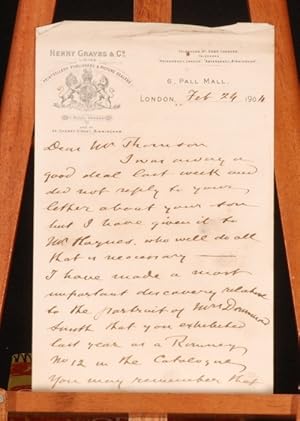 HENRY GRAVES & Co.
LIMITED
PRINTSELLERS, PUBLISHERS & PICTURE DEALERS
AND AT
CHERRY STREET, BIRMINGHAM
6, PALL MALL,
LONDON, Feb 24 1904
Dear Mr Thomson
I was away a
good deal last week and
did not reply to your
letter about your son
but I have given it to
Mr Hagues, who will do all
that is necessary —
I have made a most
important discovery relative
to the portrait of Mrs Drummond
Smith that you exhibited
last year as a Romney
No 12 in the Catalogue,
You may remember that